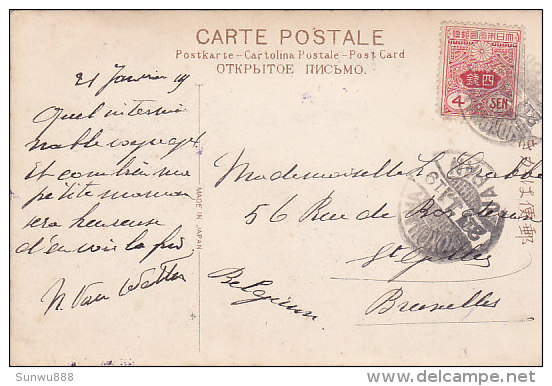 CARTE POSTALE
Postkarte - Cartolina Postale - Post Card
ОТКРЫТОЕ ПИСЬМО.
21 Janvier 19
Quel intermi
nable voyage
Et combien ma
petite maman
sera heureuse
d'en voir la fin
Mademoiselle L. Crabbe
56 Rue de
St Gilles
Bruxelles
Belgium
MADE IN JAPAN
大日本帝國郵便
四錢
4 SEN
便郵
Sunwu888
delcampe.net